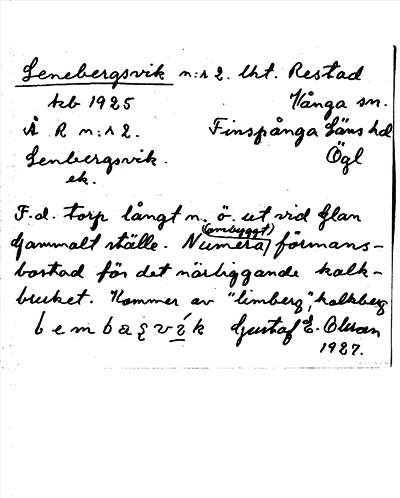 Lenebergsvik n:r 2. lht. Restad
kb 1925 Vånga sn.
Å R n:r 2. Finspånga Läns hd
Lenbergsvik. Ögl
ek.
F.d. torp långt n. ö. ut vid Glan
Gammalt ställe. Numera (ombyggt) förmans-
bostad för det närliggande kalk-
bruket. Kommer av "limberg", kalkberg
Gustaf E. Olsson
1927.